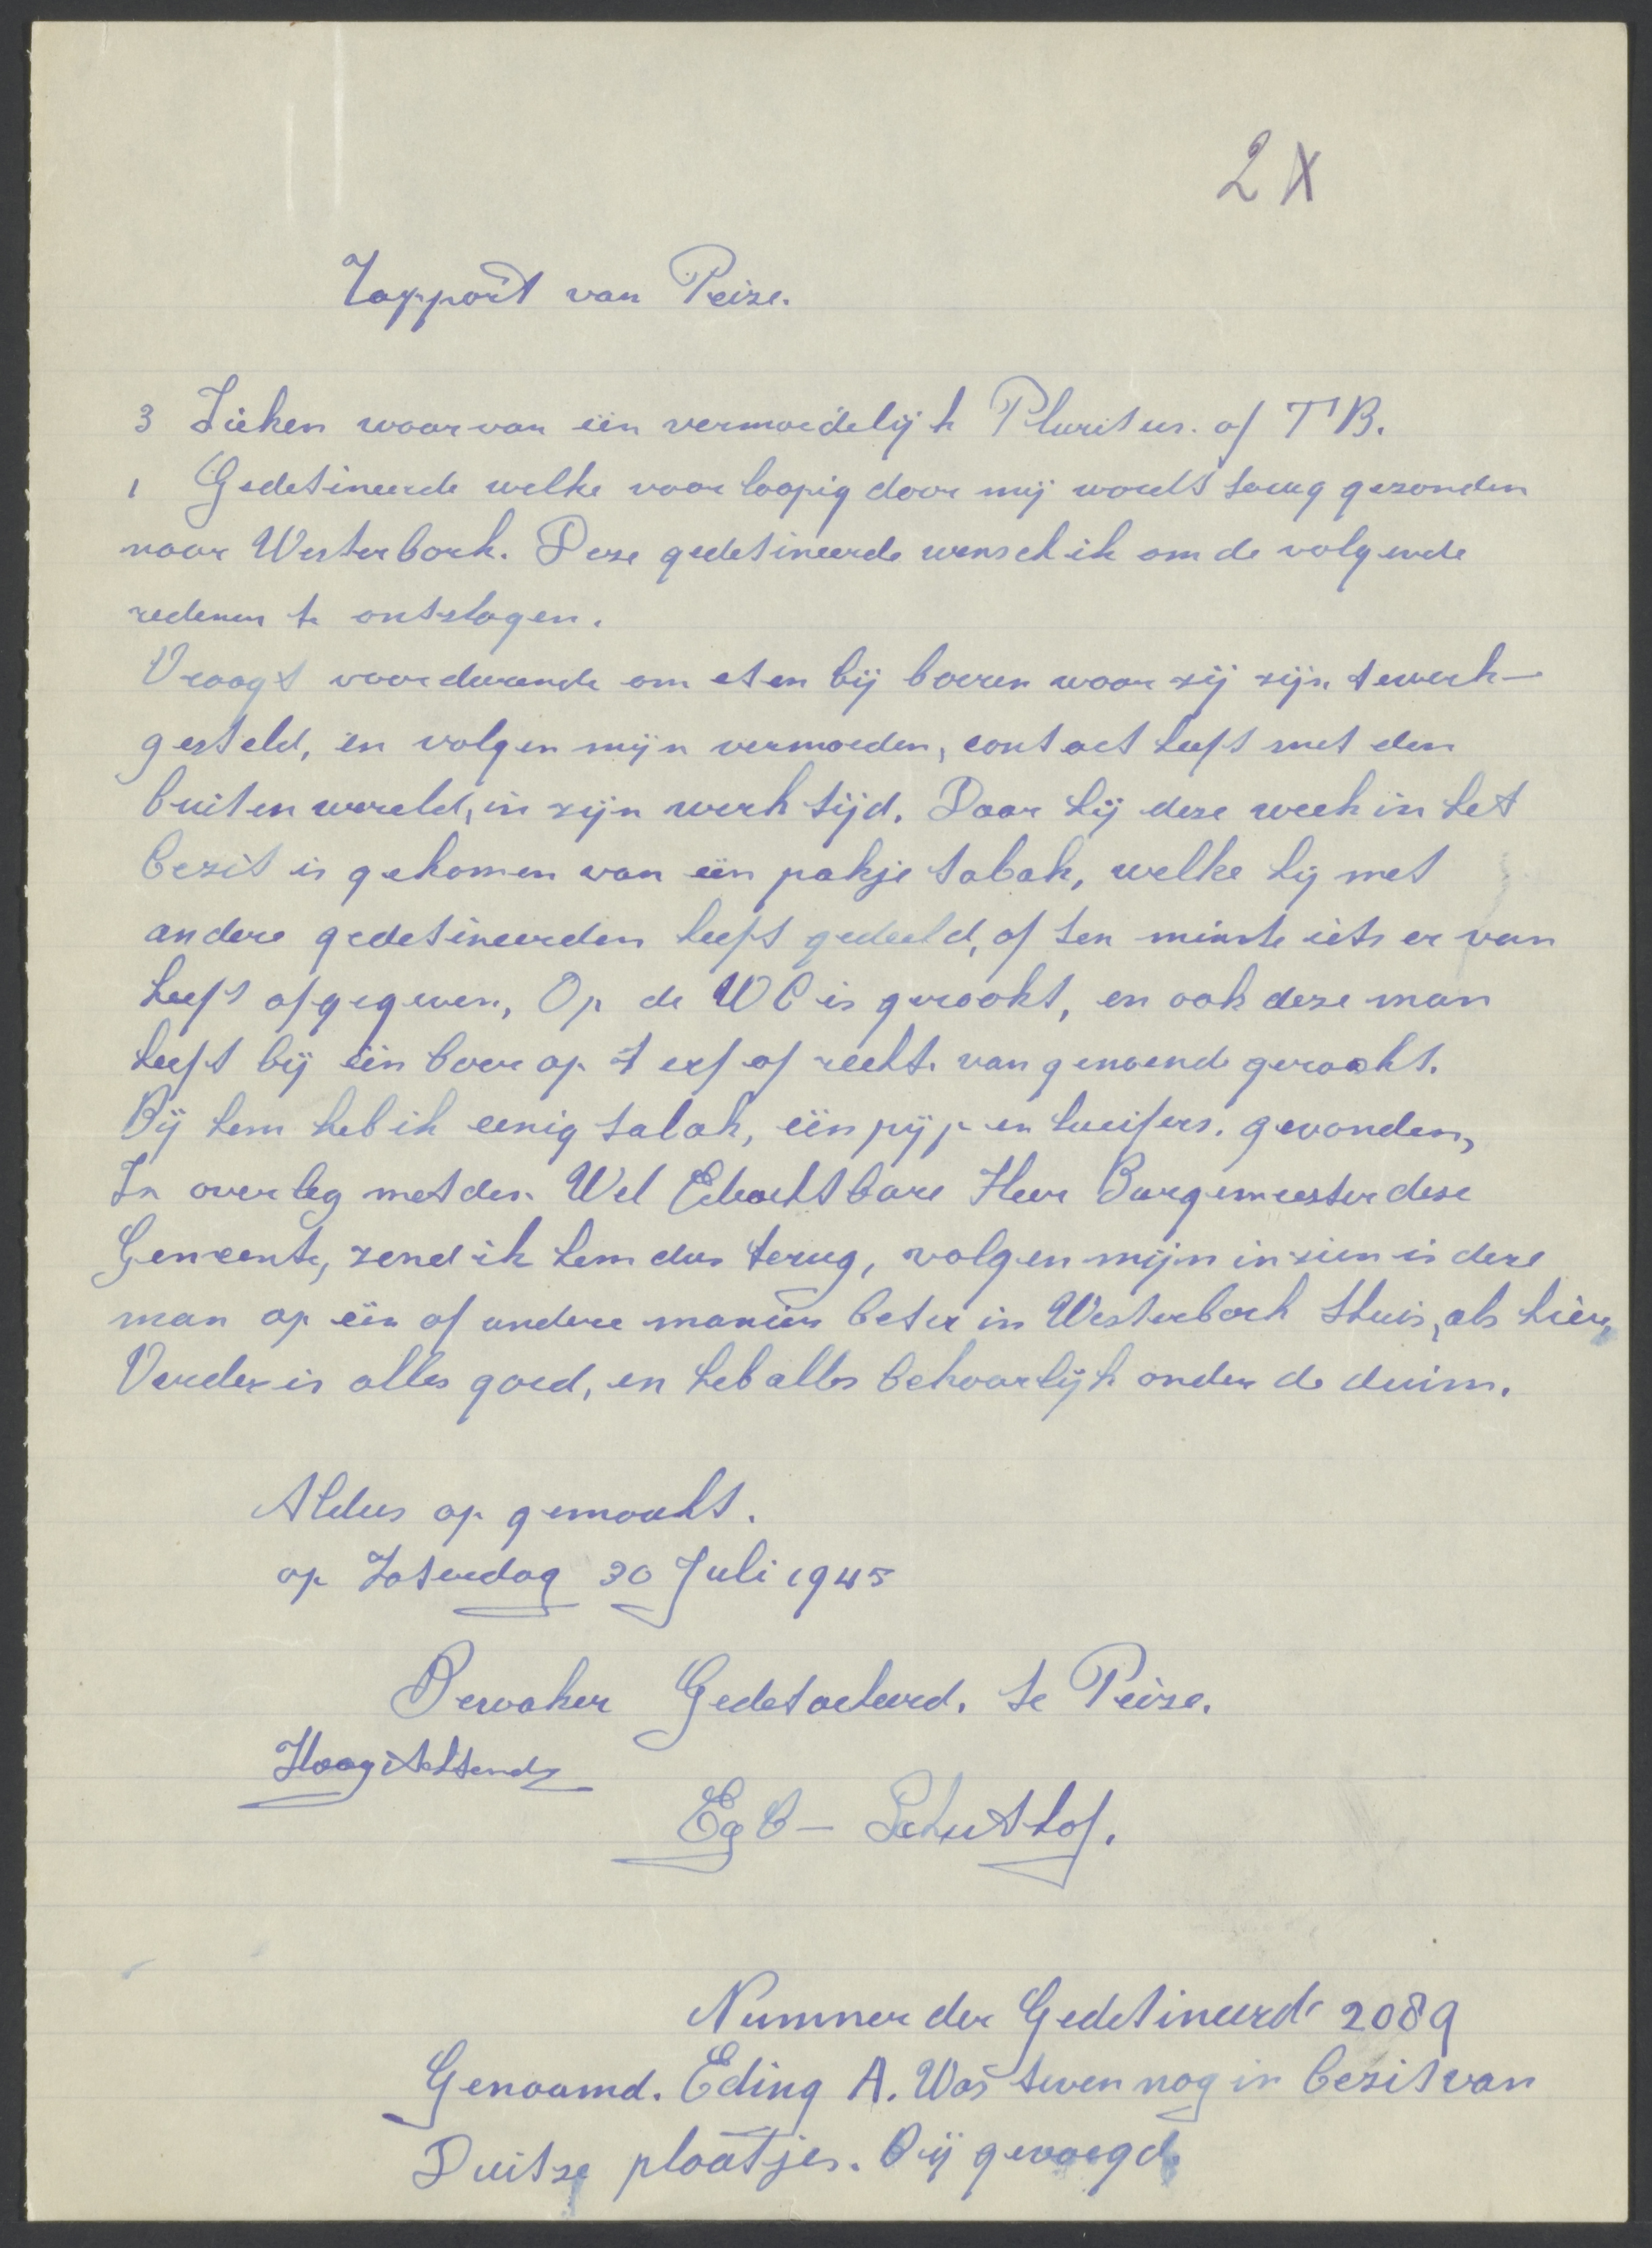 2 X
Rapport van Peize.
3 Zieken waarvan één vermoedelijk Pluritus. of T B.
1 Gedetineerde welke voorloopig door mij wordt terug gezonden
naar Westerbork. Deze gedetineerde wensch ik om de volgende
redenen te ontslagen.
Vraagt voordurende om eten bij boeren waar zij zijn tewerk-
gesteld, en volgen mijn vermoeden, contact heeft met den
buiten wereld, in zijn werktijd. Daar hij deze week in het
bezit is gekomen van één pakje tabak, welke hij met
andere gedetineerden heeft gedeeld, of ten minste iets er van
heeft afgegeven, Op de WC is gerookt, en ook deze man
heeft bij één boer op 't erf of recht. van genoend gerookt.
Bij hem heb ik eenig tabak, één pijp en lucifers. gevonden,
In overleg met den Wel Edeachtbare Heer Burgemeester deze
Gemeente, zend ik hem dus terug, volgen mijn inzien is deze
man op één of andere manier beter in Westerbork thuis, als hier,
Verder is alles goed, en heb alles behoorlijk onder de duim.
Aldus op gemaakt.
op Zaterdag 30 Juli 1945
Bewaker Gedetacheerd. te Peize.
Hoogachtend
Egb- Schuthof.
Nummer der Gedetineerde 2089
Genaamd. Eding A. Was tevens nog in bezit van
Duitse plaatjes. Bij gevoegd.